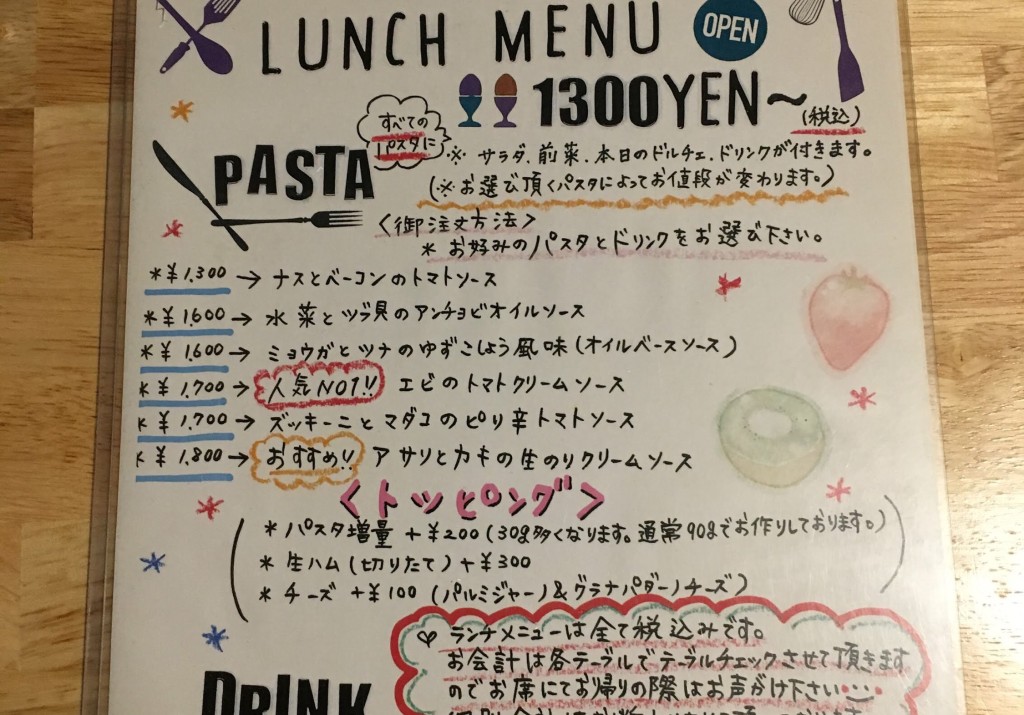 LUNCH MENU OPEN
1300YEN〜
(税込)
すべての
パスタに
PASTA
※ サラダ、前菜、本日のドルチェ、ドリンクが付きます。
(※お選び頂くパスタによってお値段が変わります。)
〈御注文方法〉
* お好みのパスタとドリンクをお選び下さい。
*¥1,300→ ナスとベーコンのトマトソース
*¥1,600→ 水菜とツブ貝のアンチョビオイルソース
*¥1,600→ ミョウガとツナのゆずこしょう風味(オイルベースソース)
*¥1,700→ 人気NO1!! エビのトマトクリームソース
*¥1,700→ ズッキーニとマダコのピリ辛トマトソース
*¥1,800→ おすすめ!! アサリとカキの生のりクリームソース
〈トッピング〉
* パスタ増量 +¥200(30g多くなります。通常90gでお作りしております。)
* 生ハム(切りたて)+¥300
* チーズ +¥100(パルミジャーノ&グラナパダーノチーズ)
ランチメニューは全て税込みです。
お会計は各テーブルでテーブルチェックさせて頂きます
のでお席にてお帰りの際はお声がけ下さい・・・
DRINK